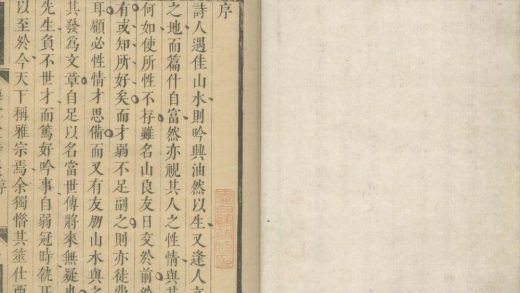 序
詩人遇佳山水則吟興油然以生又逢人
之地而篇什自富然亦視其人之性情與其
何如使所性不存雖名山良友日交於前
有或知所好矣而才弱不足副之則亦徒
耳顧必性情才思備而又有友朋山水與之
其發爲文章自足以名當世傳將來無疑
先生負不世才而篤好吟事自弱冠時
以至於今天下稱雅宗焉余獨惜其筮仕西